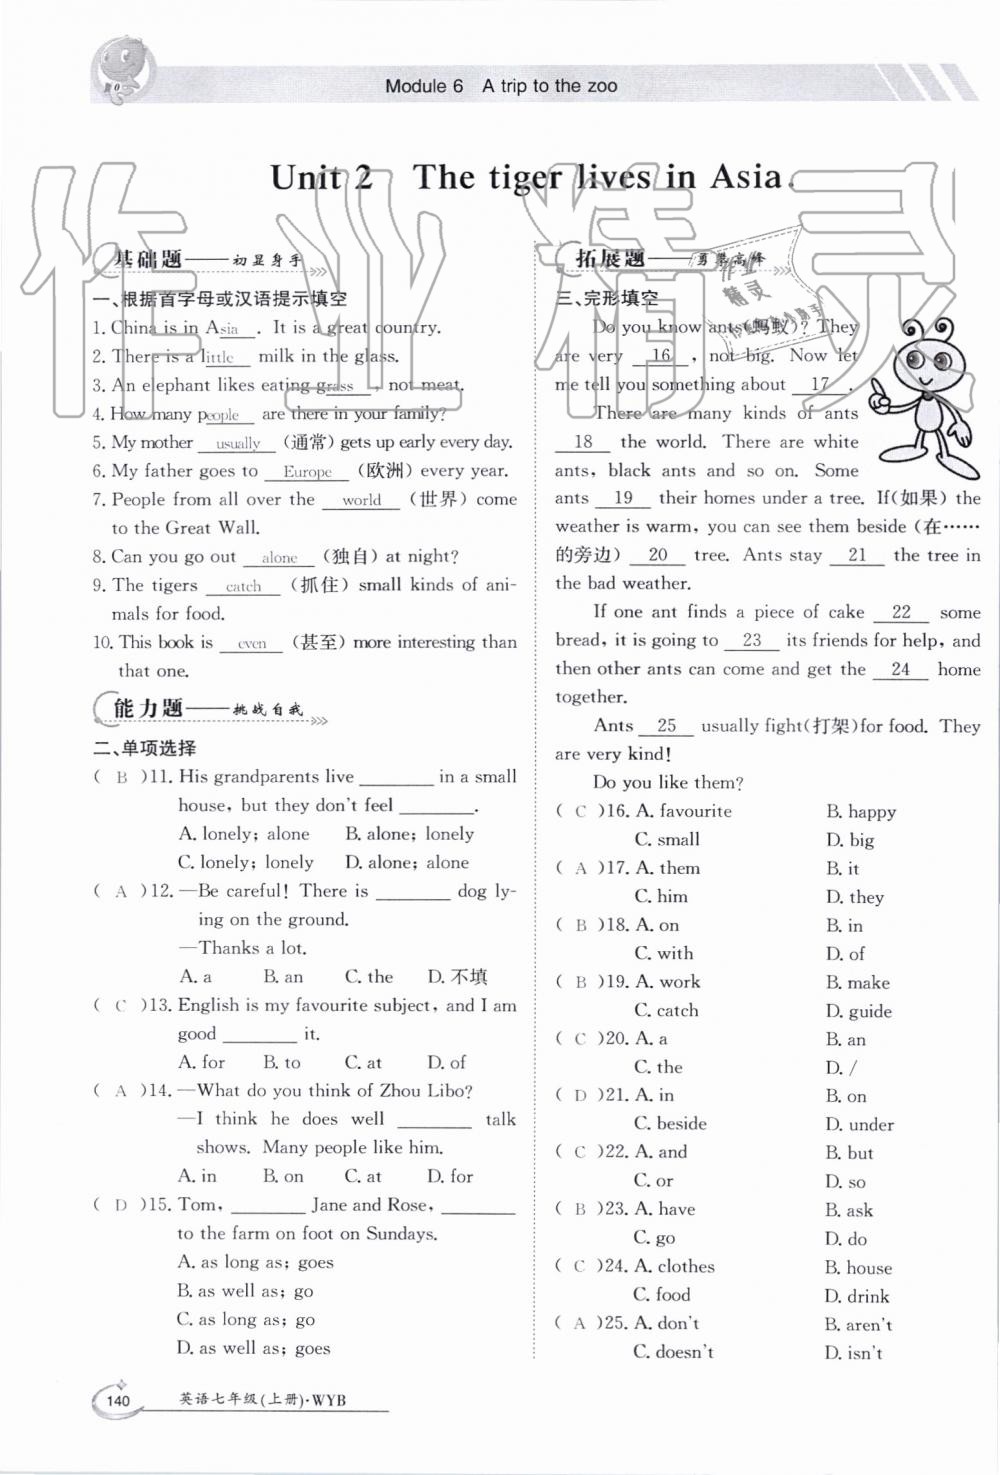 Module 6 A trip to the zoo
Unit 2 The tiger lives in Asia
基础题——初显身手
一、根据首字母或汉语提示填空
1. China is in Asia. It is a great country.
2. There is a little milk in the glass.
3. An elephant likes eating grass, not meat.
4. How many people are there in your family?
5. My mother usually (通常) gets up early every day.
6. My father goes to Europe (欧洲) every year.
7. People from all over the world (世界) come
to the Great Wall.
8. Can you go out alone (独自) at night?
9. The tigers catch (抓住) small kinds of ani-
mals for food.
10. This book is even (甚至) more interesting than
that one.
能力题——挑战自我
二、单项选择
( B )11. His grandparents live ________ in a small
house, but they don't feel ________.
A. lonely; alone B. alone; lonely
C. lonely; lonely D. alone; alone
( A )12. —Be careful! There is ________ dog ly-
ing on the ground.
—Thanks a lot.
A. a B. an C. the D. 不填
( C )13. English is my favourite subject, and I am
good ________ it.
A. for B. to C. at D. of
( A )14. —What do you think of Zhou Libo?
—I think he does well ________ talk
shows. Many people like him.
A. in B. on C. at D. for
( D )15. Tom, ________ Jane and Rose, ________
to the farm on foot on Sundays.
A. as long as; goes
B. as well as; go
C. as long as; go
D. as well as; goes
140 英语七年级(上册)·WYB
拓展题——勇攀高峰
三、完形填空
Do you know ants(蚂蚁)? They
are very 16 , not big. Now let
me tell you something about 17 .
There are many kinds of ants
18 the world. There are white
ants, black ants and so on. Some
ants 19 their homes under a tree. If(如果) the
weather is warm, you can see them beside (在……
的旁边) 20 tree. Ants stay 21 the tree in
the bad weather.
If one ant finds a piece of cake 22 some
bread, it is going to 23 its friends for help, and
then other ants can come and get the 24 home
together.
Ants 25 usually fight(打架)for food. They
are very kind!
Do you like them?
( C )16. A. favourite B. happy
C. small D. big
( A )17. A. them B. it
C. him D. they
( B )18. A. on B. in
C. with D. of
( B )19. A. work B. make
C. catch D. guide
( C )20. A. a B. an
C. the D. /
( D )21. A. in B. on
C. beside D. under
( C )22. A. and B. but
C. or D. so
( B )23. A. have B. ask
C. go D. do
( C )24. A. clothes B. house
C. food D. drink
( A )25. A. don't B. aren't
C. doesn't D. isn't
作业精灵